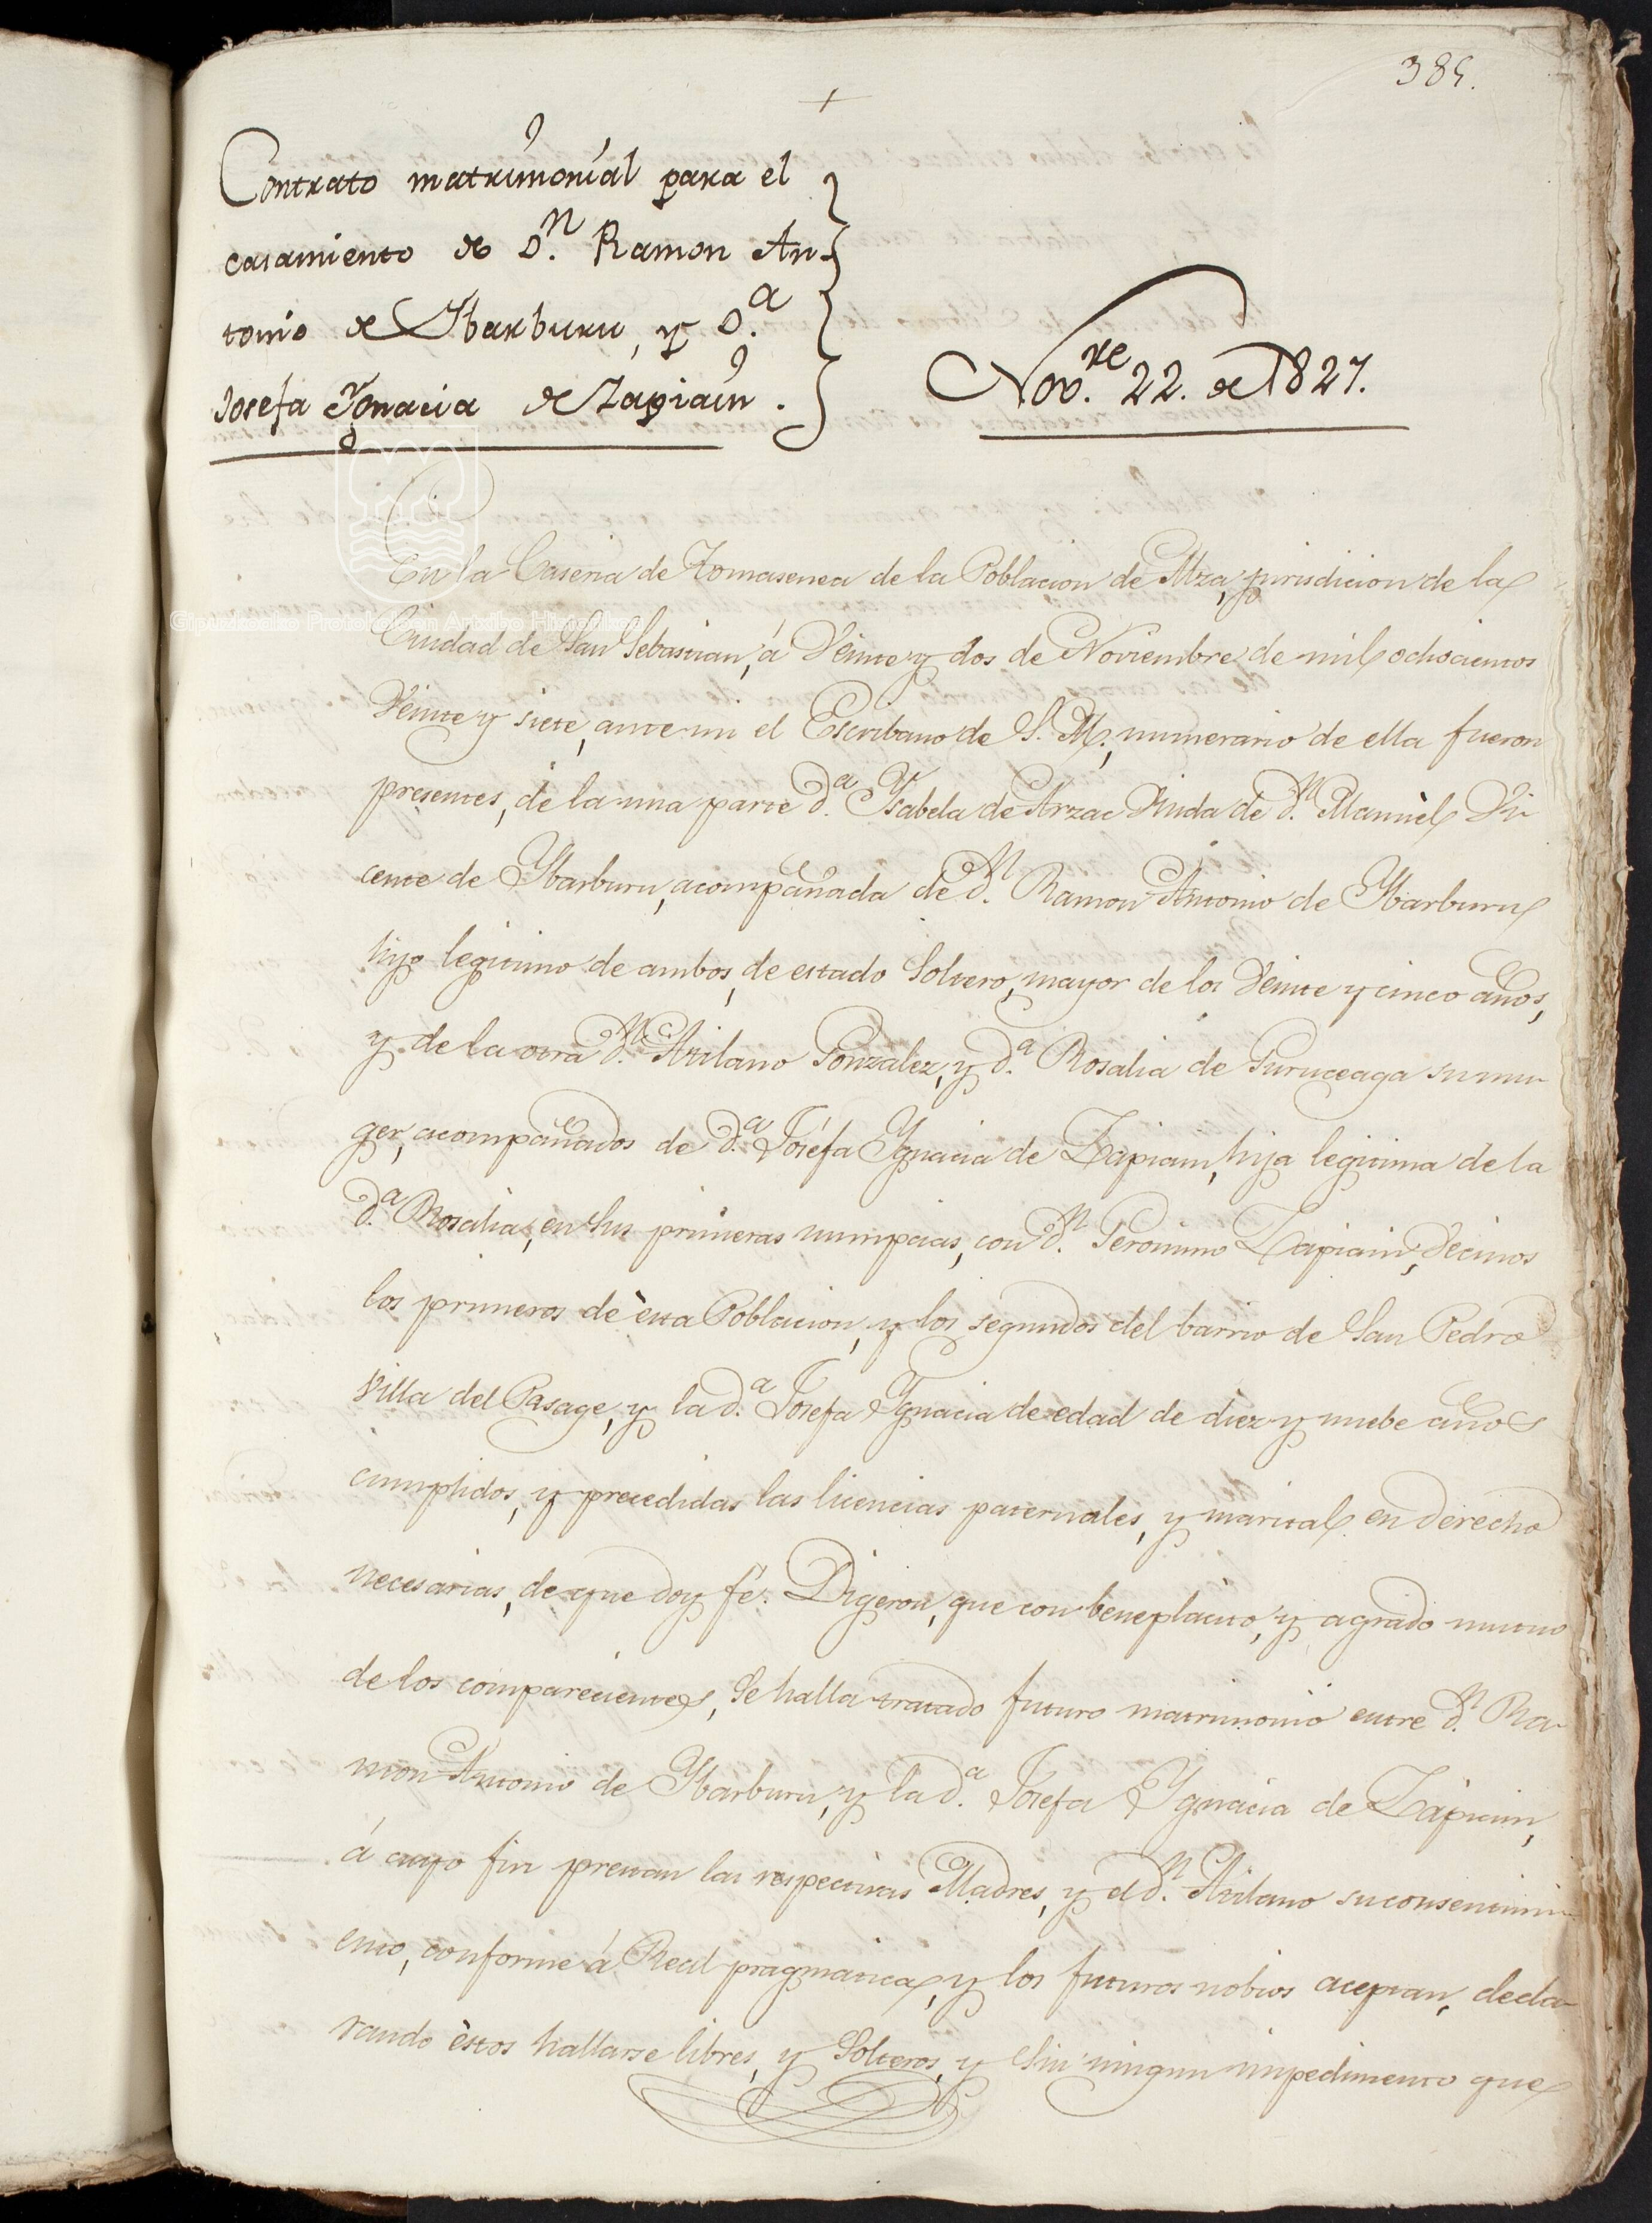 385.
+
Contrato matrimonial para el
casamiento de D.n Ramon An-
tonio de Ybarburu, y D.a
Josefa Ygnacia de Zapiain.
Nov.re 22. de 1827.
En la Caseria de Tomasenea de la Poblacion de Alza, jurisdicion de la
Ciudad de San Sebastian, á Veinte y dos de Noviembre de mil ochocientos
Veinte y siete, ante mi el Escribano de S. M., numerario de ella fueron
presentes, de la una parte D.a Ysabela de Arzac Viuda de D.n Manuel Vi-
cente de Ybarburu, acompañada de D.n Ramon Antonio de Ybarburu
hijo legitimo de ambos, de estado Soltero, mayor de los Veinte y cinco años,
y de la otra D.n Atilano Gonzalez, y D.a Rosalia de Guruceaga su mu-
ger, acompañados de D.a Josefa Ygnacia de Zapiain, hija legitima de la
D.a Rosalia, en sus primeras numpcias, con D.n Geronimo Zapiain, Vecinos
los primeros de èsta Poblacion, y los segundos del barrio de San Pedro
Villa del Pasage, y la D.a Josefa Ygnacia de edad de diez y nuebe años
cumplidos, y precedidas las licencias paternales, y marital en derecho
necesarias, de que doy fé. Digeron, que con beneplacito, y agrado mutuo
de los comparecientes, se halla tratado futuro matrimonio entre D.n Ra-
mon Antonio de Ybarburu, y la D.a Josefa Ygnacia de Zapiain,
á cuyo fin prestan las respectivas Madres, y el D.n Atilano su consentimi-
ento, conforme á Real pragmatica, y los futuros nobios aceptan, decla-
rando èstos hallarse libres, y Solteros, y sin ningun impedimento que
Gipuzkoako Protokoloen Artxibo Historikoa